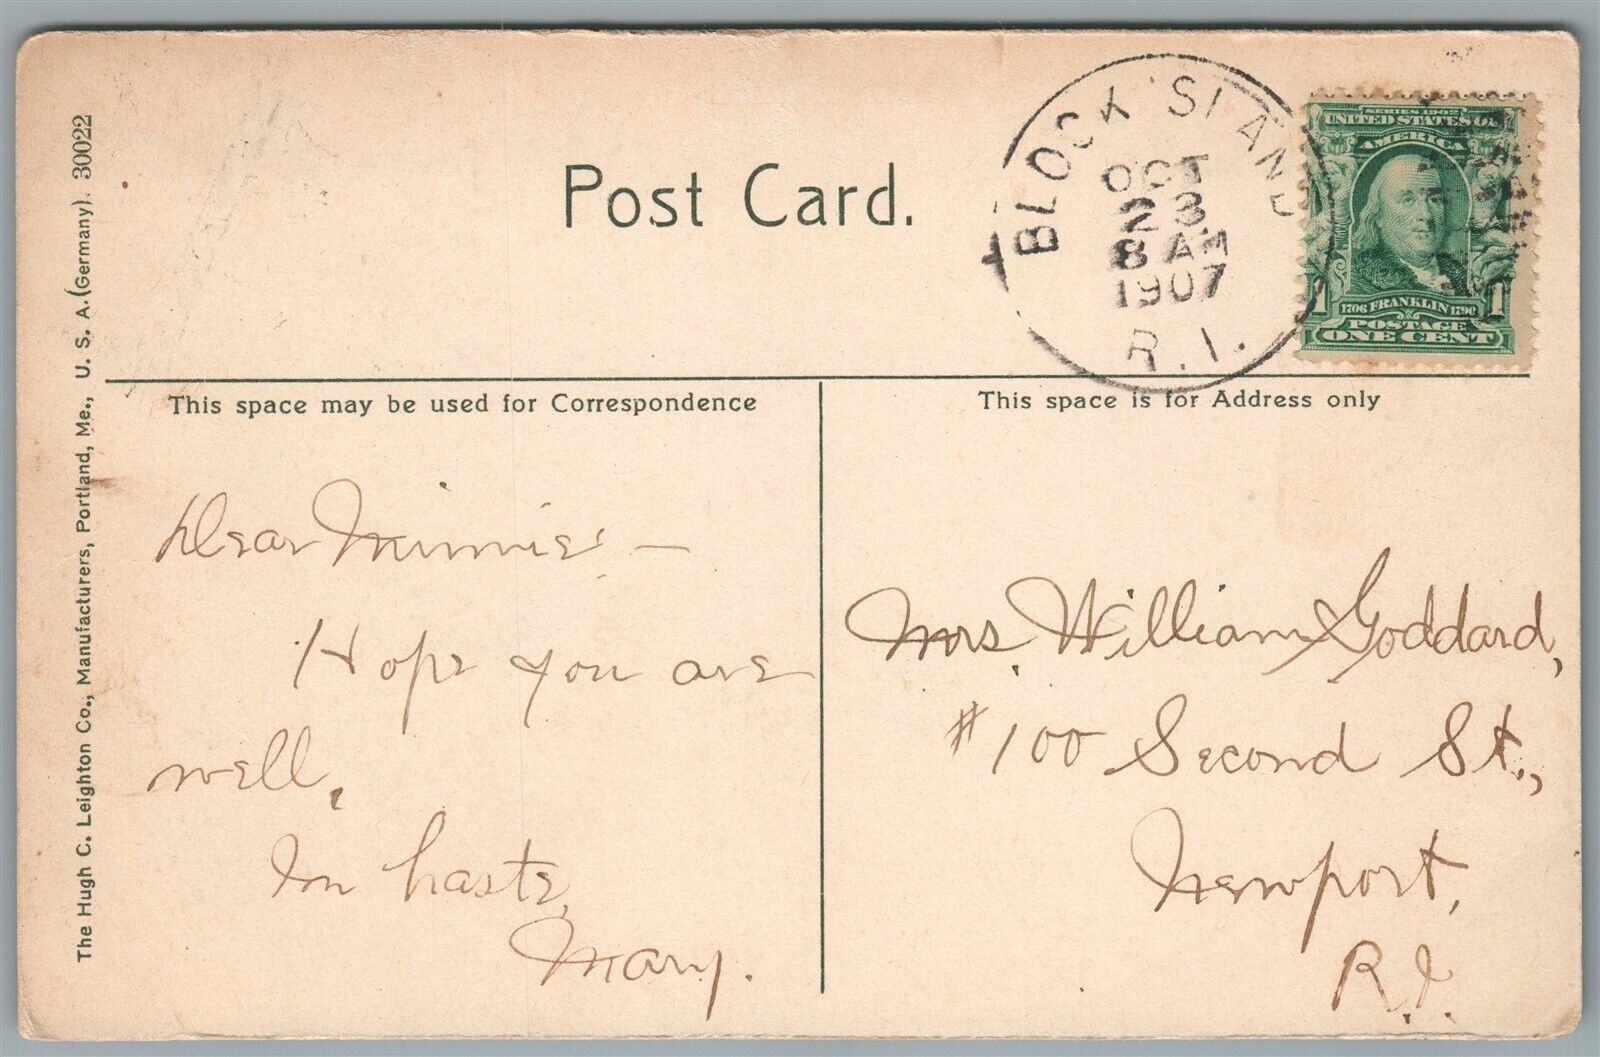 Post Card.
BLOCK ISLAND
OCT
23
8 AM
1907
R.I.
SERIES 1902
UNITED STATES OF
AMERICA
1706 FRANKLIN 1790
1 1
POSTAGE
ONE CENT
The Hugh C. Leighton Co., Manufacturers, Portland, Me., U. S. A. (Germany). 30022
This space may be used for Correspondence
This space is for Address only
Dear Minnie:—
Hope you are
well.
In haste,
Mary.
Mrs. William Goddard,
#100 Second St.,
Newport,
R.I.